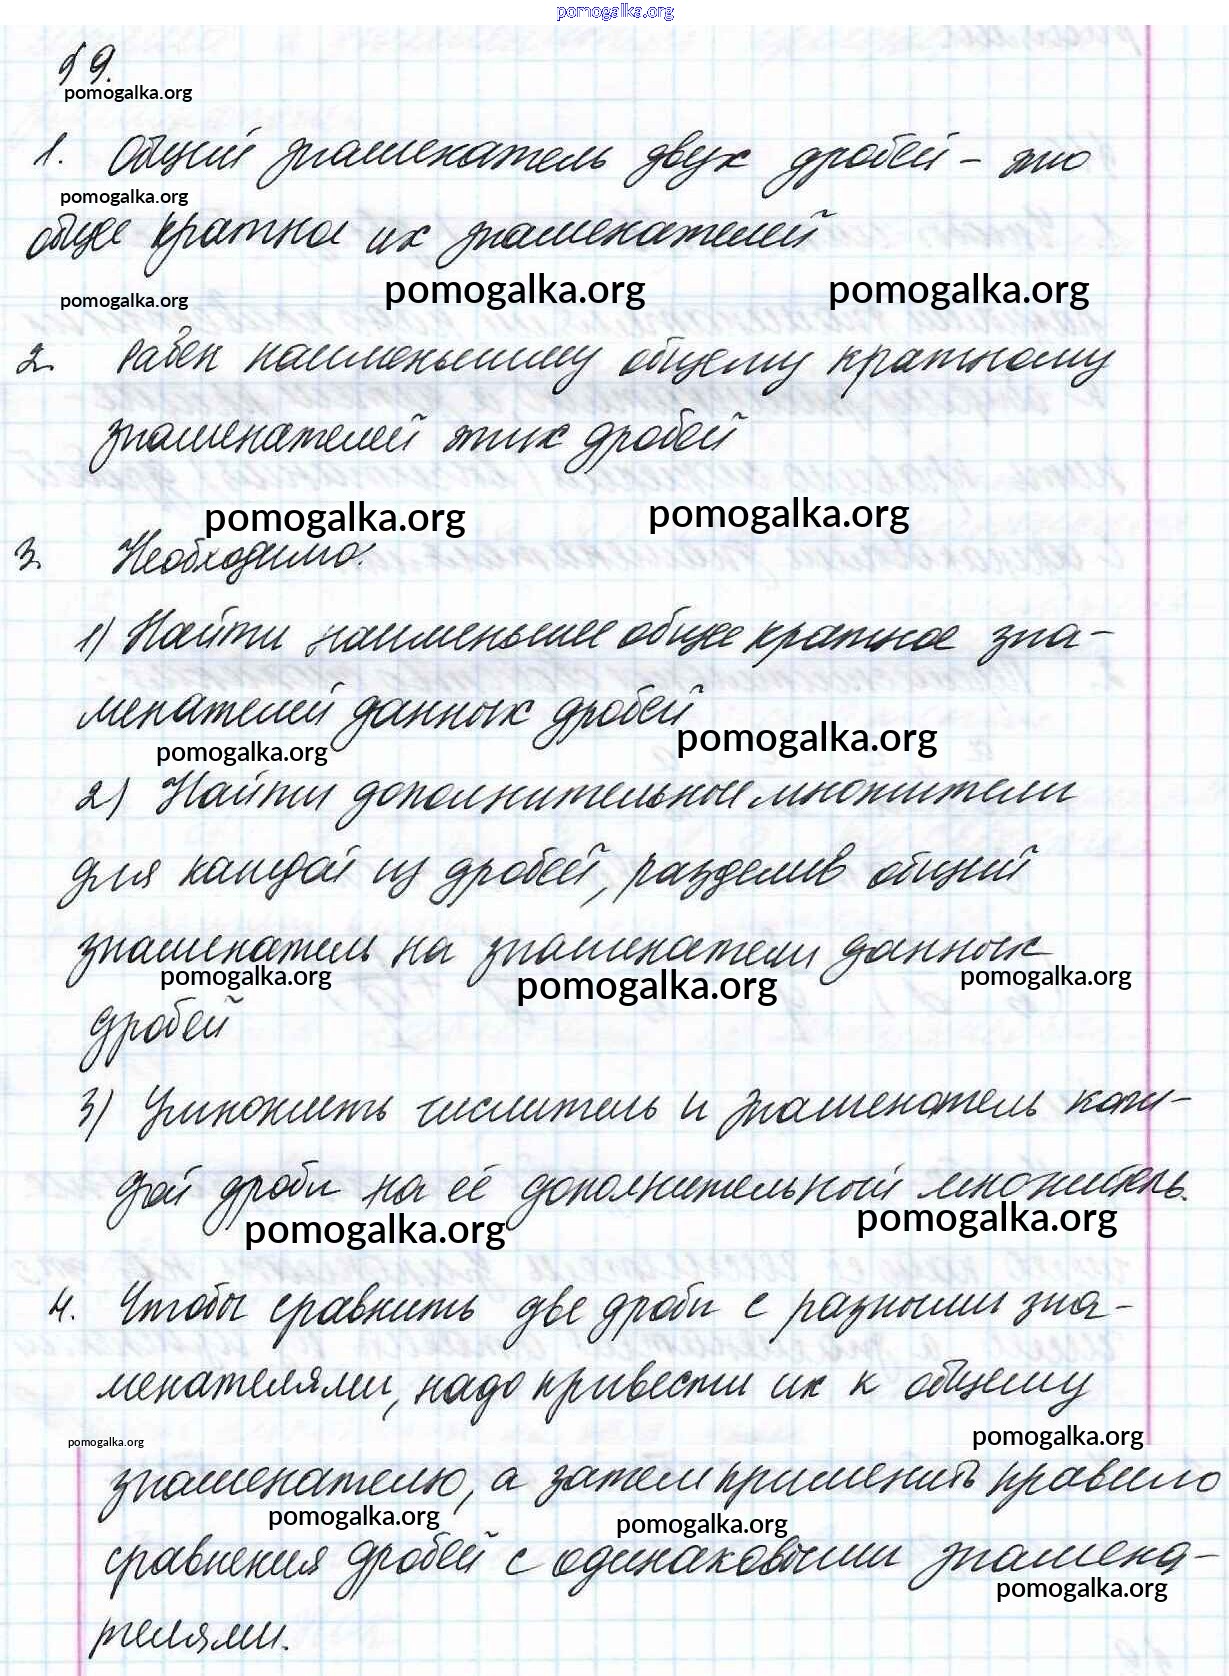 pomogalka.org
§ 9.
pomogalka.org
1. Общий знаменатель двух дробей – это
pomogalka.org
общее кратное их знаменателей
pomogalka.org pomogalka.org pomogalka.org
2. Равен наименьшему общему кратному
знаменателей этих дробей
pomogalka.org pomogalka.org
3. Необходимо:
1) Найти наименьшее общее кратное зна-
менателей данных дробей
pomogalka.org pomogalka.org
2) Найти дополнительные множители
для каждой из дробей, разделив общий
знаменатель на знаменатели данных
pomogalka.org pomogalka.org pomogalka.org
дробей
3) Умножить числитель и знаменатель каж-
дой дроби на её дополнительный множитель.
pomogalka.org pomogalka.org
4. Чтобы сравнить две дроби с разными зна-
менателями, надо привести их к общему
pomogalka.org pomogalka.org
знаменателю, а затем применить правило
pomogalka.org pomogalka.org
сравнения дробей с одинаковыми знамена-
pomogalka.org
телями.